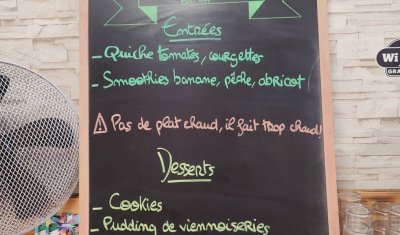 Entrées
- Quiche tomates, courgettes
- Smoothies banane, pêche, abricot
⚠ Pas de plat chaud, il fait trop chaud!
Desserts
- Cookies
- Pudding de viennoiseries
Wi
GRA